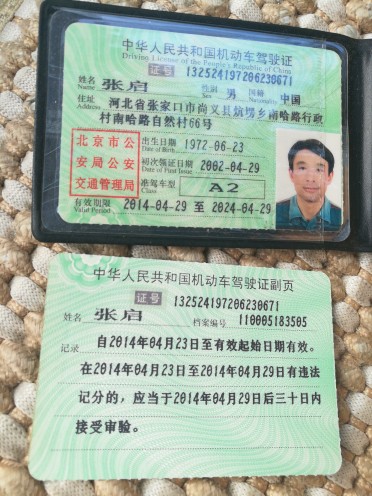 中华人民共和国机动车驾驶证
Driving License of the People's Republic of China
证号 132524197206230671
姓名 张启 性别 男 国籍 中国
Name Sex Nationality
住址 河北省张家口市尚义县炕塄乡南哈路行政
Address
村南哈路自然村66号
北京市公
安局公安
交通管理局
出生日期 1972-06-23
Date of Birth
初次领证日期 2002-04-29
Date of First Issue
准驾车型 A2
Class
有效期限 2014-04-29 至 2024-04-29
Valid Period
中华人民共和国机动车驾驶证副页
证号 132524197206230671
姓名 张启 档案编号 110005183505
Name
记录 自2014年04月23日至有效起始日期有效。
在2014年04月23日至2014年04月29日有违法
记分的，应当于2014年04月29日后三十日内
接受审验。